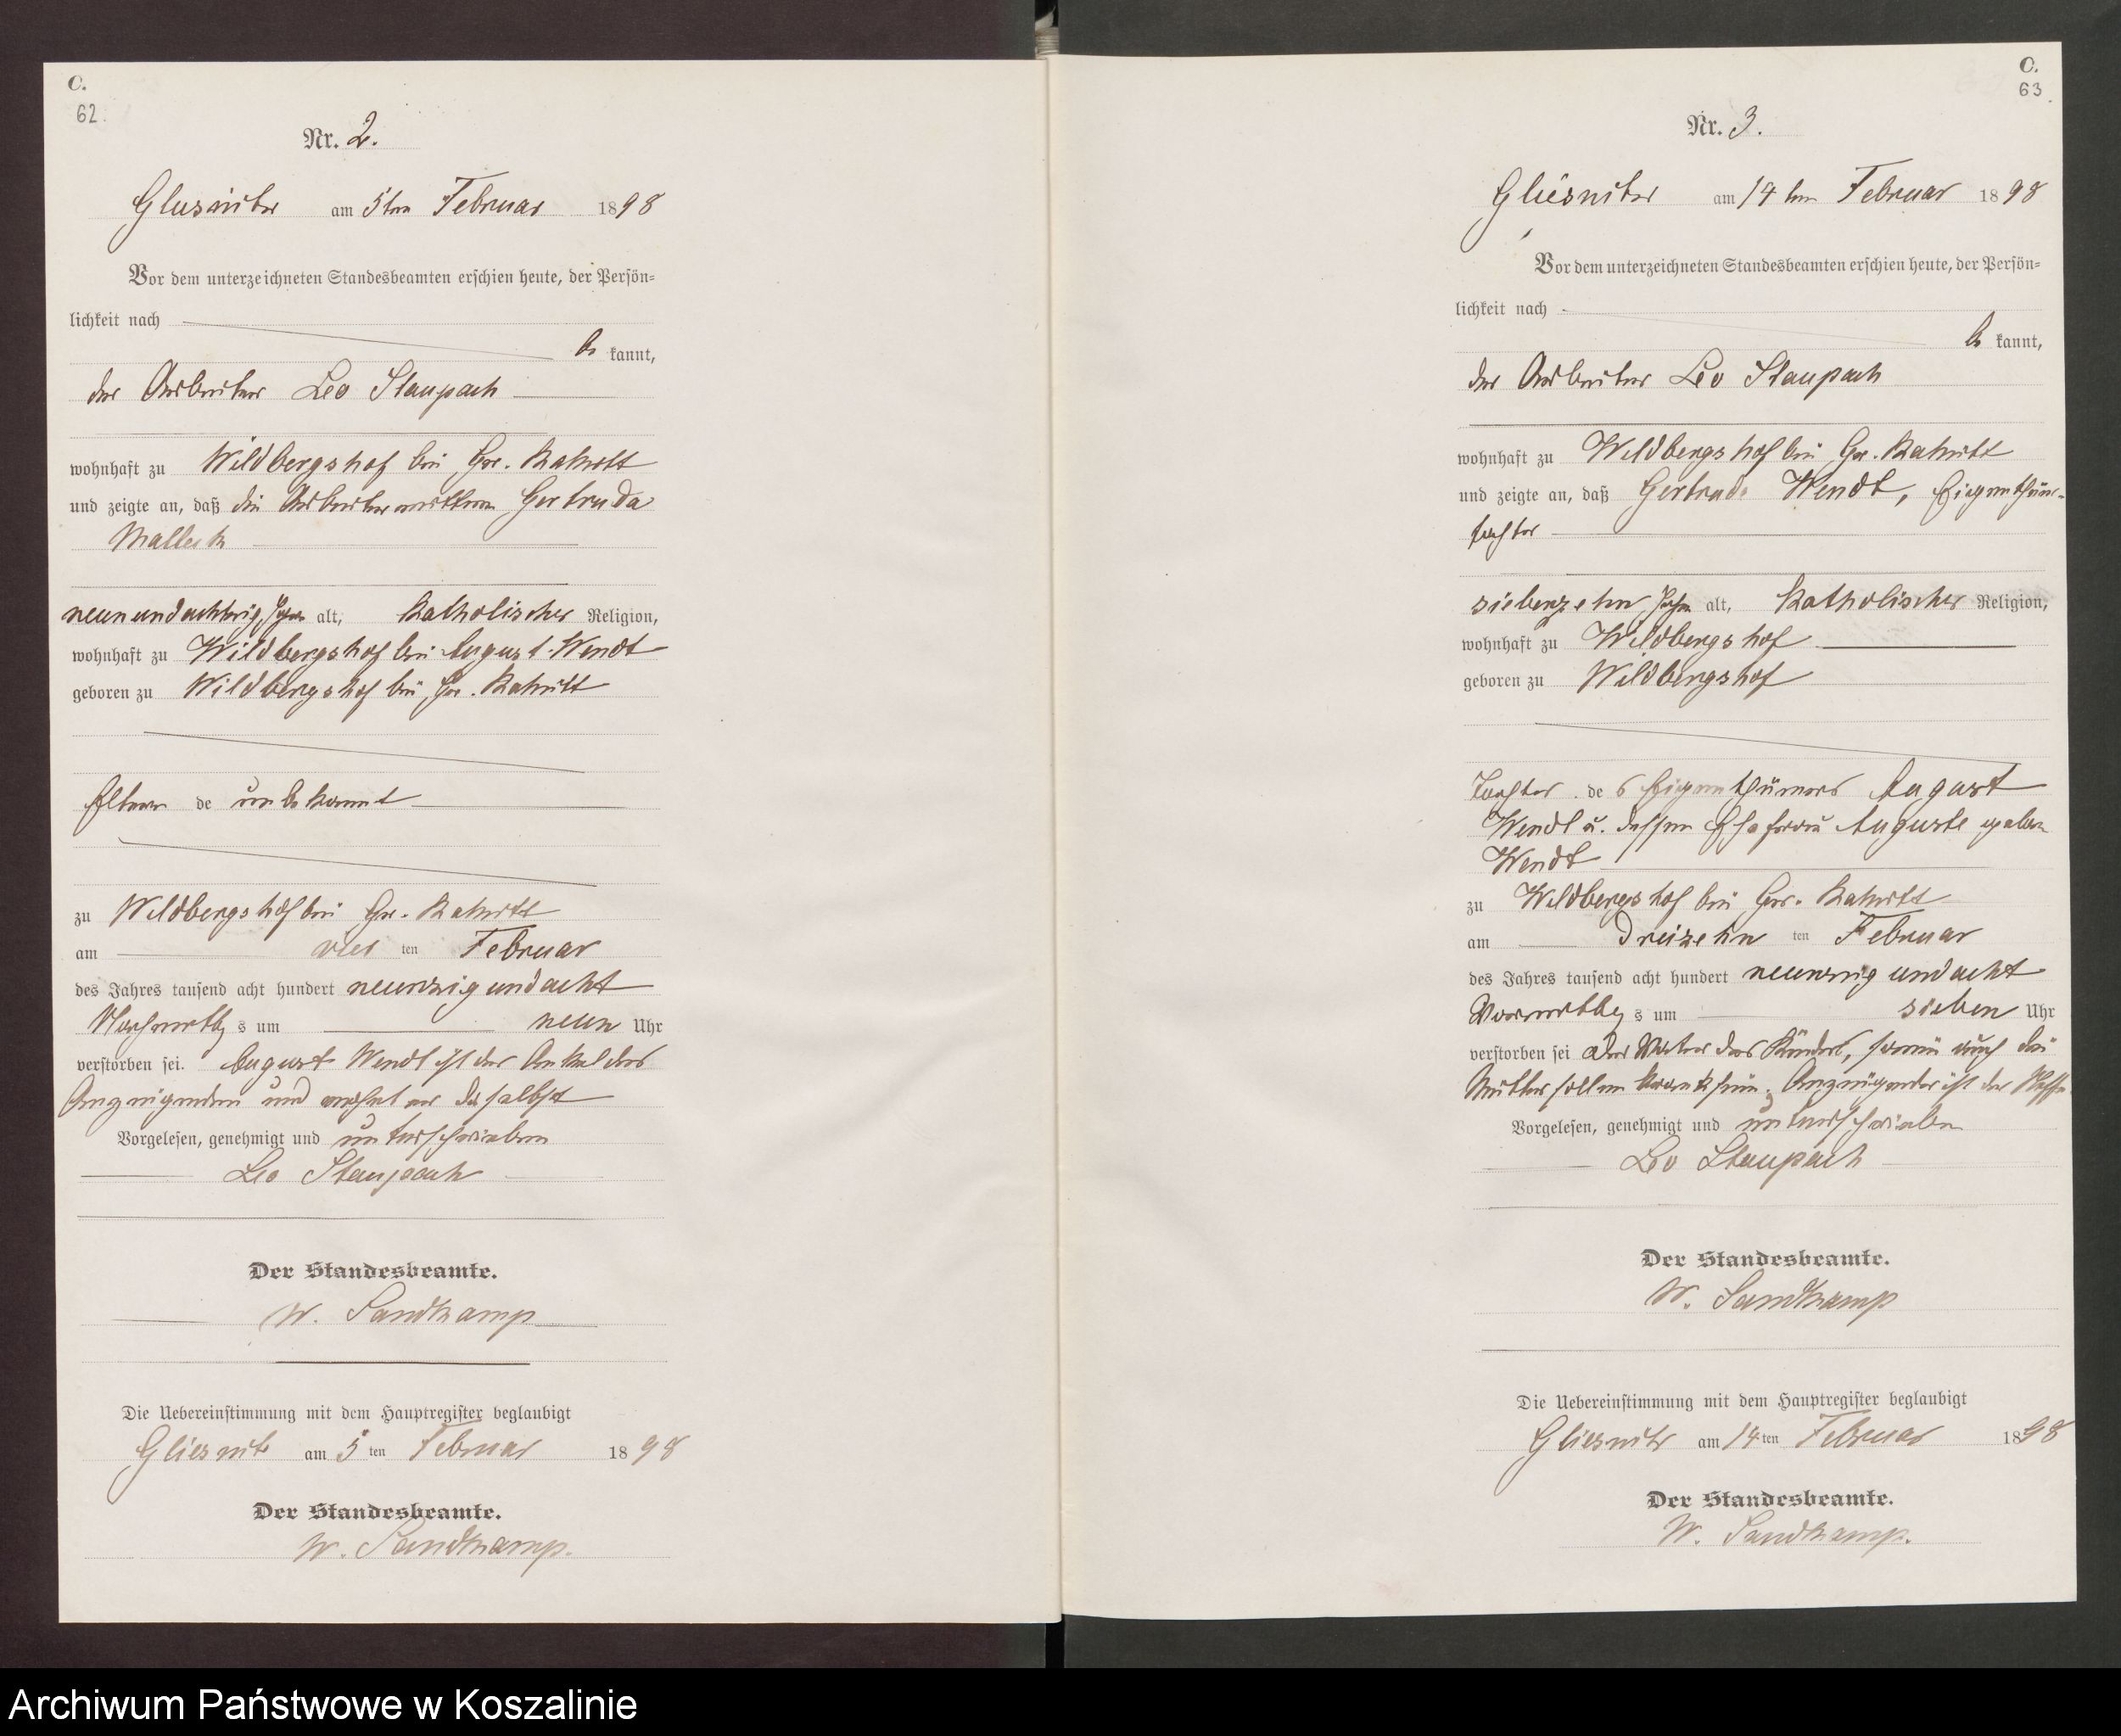 C.
62
Nr. 2.
Glusnitz am 5ten Februar 1898
Vor dem unterzeichneten Standesbeamten erschien heute, der Persön=
lichkeit nach
be kannt,
der Arbeiter Leo Staupach
wohnhaft zu Wildbergshof bei Gr. Rakitt
und zeigte an, daß die Arbeiterwittwe Gertruda
Malleck
neunundachtzig Jahre alt, katholischer Religion,
wohnhaft zu Wildbergshof bei August Wendt
geboren zu Wildbergshof bei Gr. Rakitt
Eltern de unbekannt
zu Wildbergshof bei Gr. Rakitt
am vier ten Februar
des Jahres tausend acht hundert neunzig und acht
Nachmittag s um neun Uhr
verstorben sei. August Wendt ist der Onkel des
Anzeigenden und wohnt er daselbst
Vorgelesen, genehmigt und unterschrieben
Leo Staupach
Der Standesbeamte.
W. Sandkamp
Die Uebereinstimmung mit dem Hauptregister beglaubigt
Gliesnitz am 5 ten Februar 1898
Der Standesbeamte.
W. Sandkamp.
C.
63
Nr. 3.
Gliesnitz am 14 ten Februar 1898
Vor dem unterzeichneten Standesbeamten erschien heute, der Persön=
lichkeit nach
be kannt,
der Arbeiter Leo Staupach
wohnhaft zu Wildbergshof bei Gr. Rakitt
und zeigte an, daß Gertrude Wendt, Eigenthümer-
tochter
siebenzehn Jahre alt, katholischer Religion,
wohnhaft zu Wildbergshof
geboren zu Wildbergshof
Tochter de s Eigenthümers August
Wendt u. dessen Ehefrau Auguste geboren
Wendt
zu Wildbergshof bei Gr. Rakitt
am dreizehn ten Februar
des Jahres tausend acht hundert neunzig und acht
Vormittag s um sieben Uhr
verstorben sei Der Vater des Kindes, sowie auch die
Mutter sollen krank sein. Anzeigender ist der Neffe
Vorgelesen, genehmigt und unterschrieben
Leo Staupach
Der Standesbeamte.
W. Sandkamp
Die Uebereinstimmung mit dem Hauptregister beglaubigt
Gliesnitz am 14 ten Februar 1898
Der Standesbeamte.
W. Sandkamp.
Archiwum Państwowe w Koszalinie